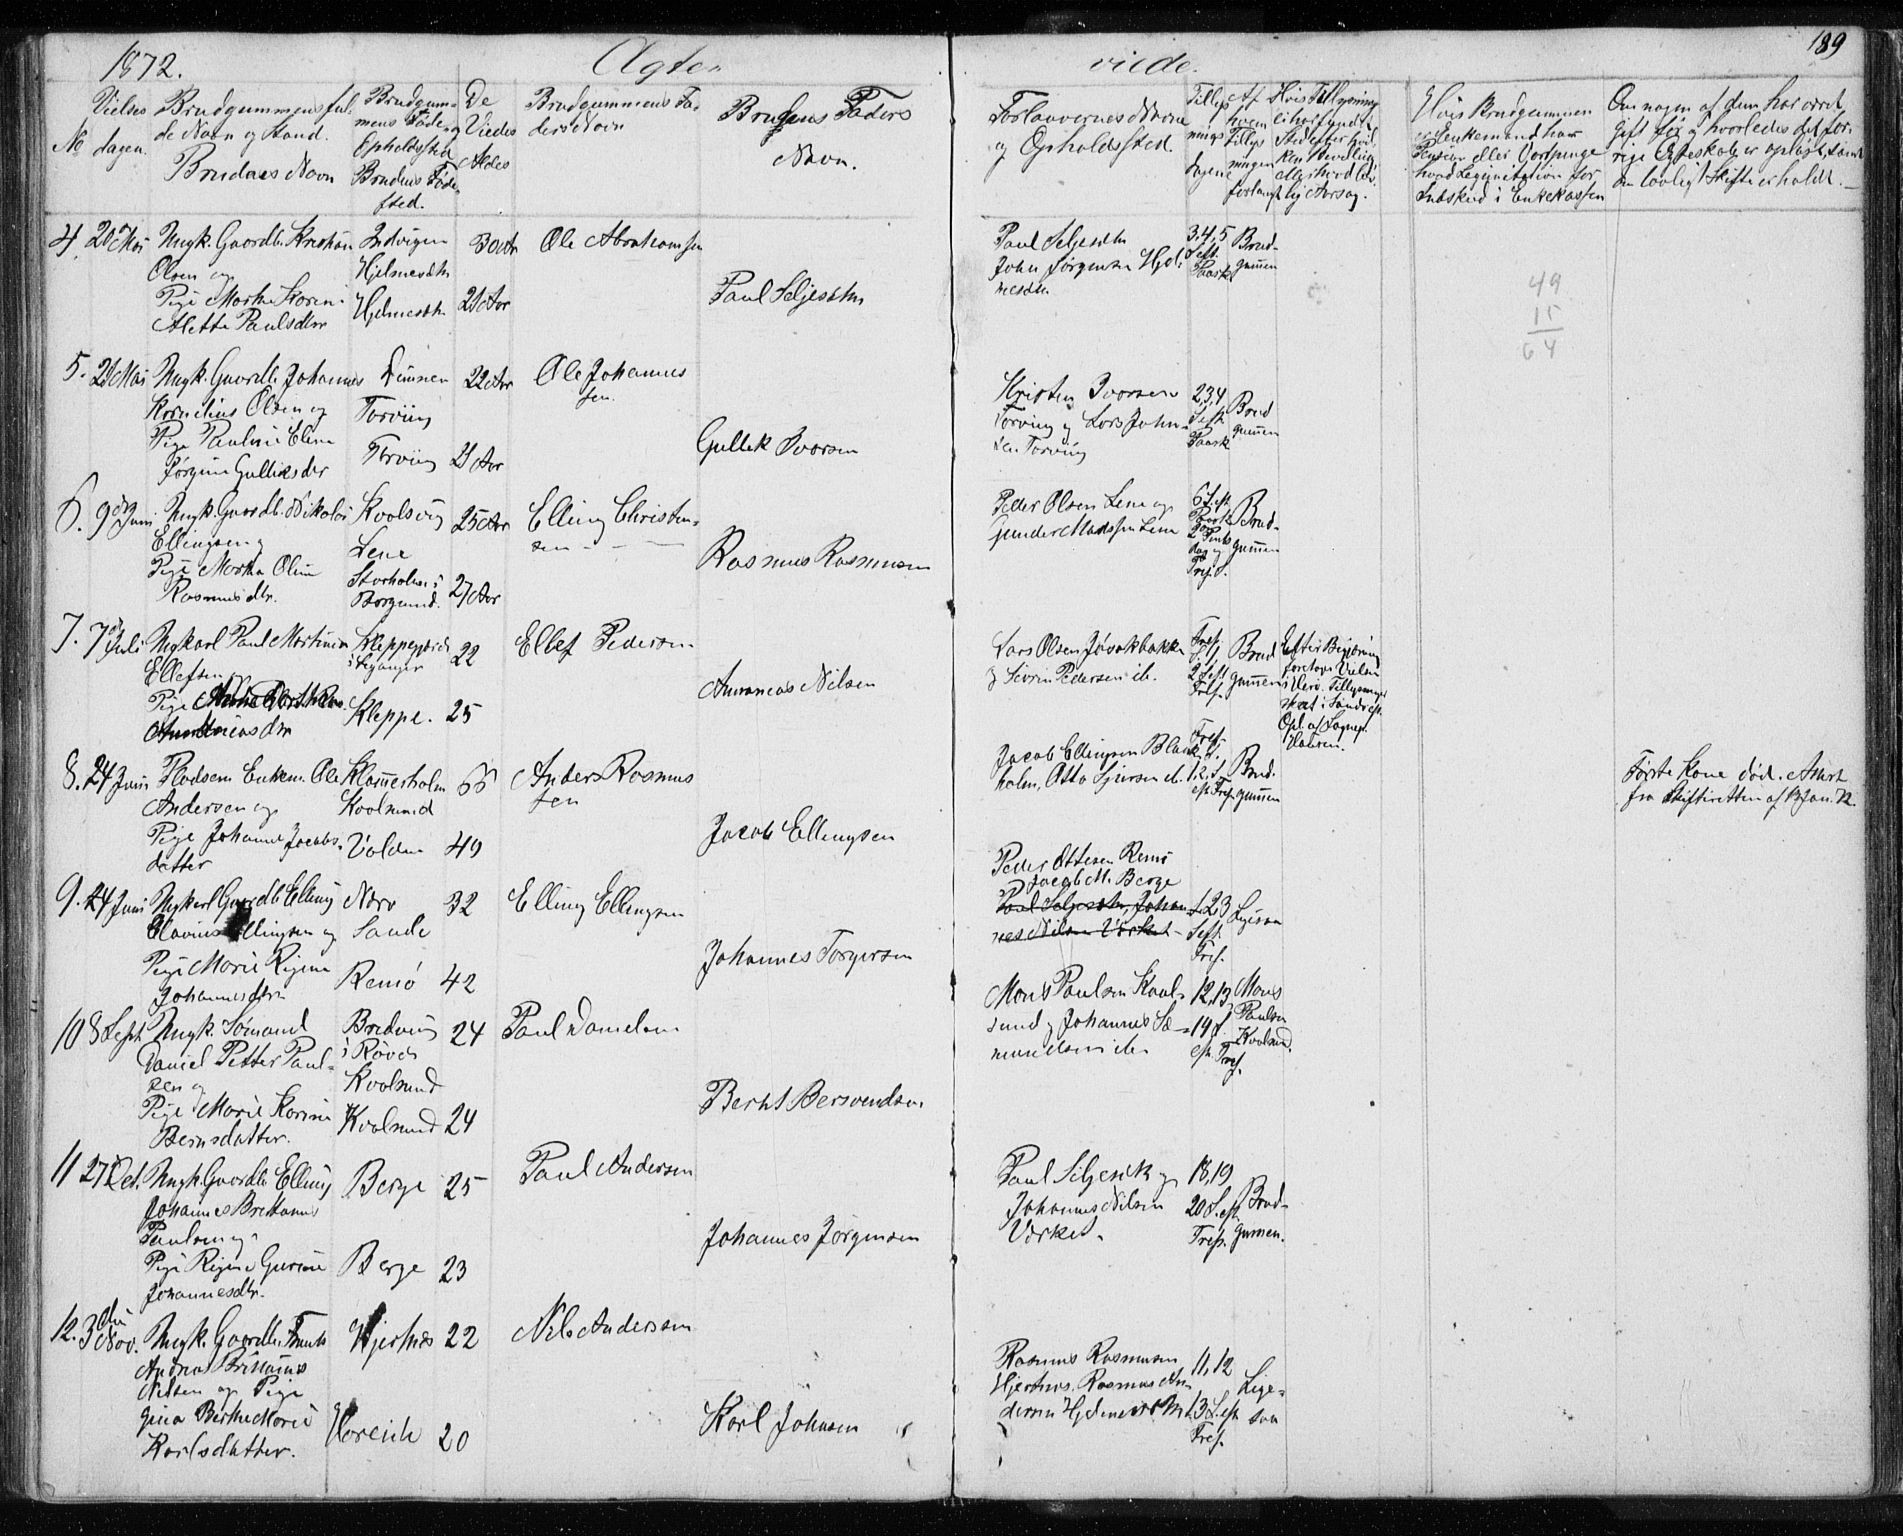 189
1872. Ægte- viede.
No
Vielses dagen.
Brudgummens fulde Navn og Stand.
Brudens Navn
Brudgummens Føde- og Opholdssted
Brudens Fødested.
De Viedes Alder
Brudgummens Faders Navn
Brudens Faders Navn.
Forlovernes Navne og Opholdssted.
Tillysningsdagene
Af hvem Tillysningen forlangt
Hvis Tillysning ei har fundet Sted efter hvilken Bevilling eller hvad lovlig Aarsag.
Hvis Brudgummen er Enkemand har Pension eller Vartpenge hvad Legitimation for Indskud i Enkekassen
Om nogen af dem har været gift før og hvorledes det forrige Ægteskab er opløst, samt om lovligt Skifte er holdt.
4. 20 Mai Ungk. Gaardbr. Kristian
Olsen og
Pige Marthe Karen
Aletta Paulsdtr
Indvigen
Hjelmesæth
Hjelmesæth
30 Aar
21 Aar
Ole Abrahamsen
Paul Seljesæth
Paul Seljesæth
John Jørgensen Hjelmesæth
3.4,5
S. eft.
Paask
Brudgummen
49
15
64
5. 21 Mai Ungk. Gaardbr. Johannes
Kornelius Olsen og
Pige Pauline Elene
Jørgine Gulliksdtr
Dimnen
Torviig
Torviig
22 Aar
21 Aar
Ole Johannessen.
Gullek Ivarsen
Kristen Ivarsen
Torviig og Lars Johnsen Torviig
2,3,4
S. eft
Paask
Brudgummen
6. 9de Juni Ungk. Gaardbr. Nikolai
Ellingsen og
Pige Martha Oline
Rasmusdtr.
Koolsvig
Lene
Storholmen i
Borgund.
25 Aar
27 Aar
Elling Christensen
Rasmus Rasmussen
Peder Olsen Lene og
Gunder Madssen Lene
Brudgummen
7. 7de Juli Ungkarl Paul Martinus
Ellefsen
Pige
Andreasdtr
Kleppe.
22
25
Ellef Pedersen
Andreas Nilsen
Lars Olsen Jøsokbakke
og Sivrin Pedersen ib.
Brudgummen
Efter Begjæring
foretages Vielsen
8. 24 Juni Pladsem. Enkem. Ole
Andersen og
Pige Johanne Jacobsdatter
Klommerholm
Koolsund
Volden
66
49
Anders Rasmussen
Jacob Ellingsen
Jacob Ellingsen Blankholm, Otto Sjursen ib.
1.2.3 S.
eft Tref.
Brudgummen
Første Kone død. Attest
fra Skifteretten af 13 Jan. 72.
9. 24 Juni Ungkarl Gaardbr Elling
Olavius Ellingsen og
Pige Marie Regine
Johannesdtr
Nærø
Sande
Remø
32
42
Elling Ellingsen
Johannes Torgersen
Peder Ottesen Remø
Jacob M. Berge
Paul Seljesæth, Johannes Nilsen Værket
1.2.3
S. eft
Tref.
Ligesaa
10 8 Sept Ungk. Sømand
Daniel Petter Paulsen og
Pige Marie Karine
Berntsdatter.
Bredvig
i Røvde
Koolsund
Koolsund
24
24
Paul Danielsen
Bernt Bersvendsen
Mons Paulsen Koolsund og Johannes Sæmundsen ib.
12,13,
14 S.
eft. Tref.
Mons
Paulsen
Koolsund.
11 27de Oct. Ungk. Gaardbr. Elling
Johannes Brittanus
Paulsen og
Pige Regine Gurine
Johannesdtr.
Berge
Berge
25
23
Paul Andersen
Johannes Jørgensen
Paul Seljesæth og
Johannes Nilsen
Værket.
18,19
20 S. eft
Tref.
Brudgummen.
12. 3die Nov. Ungk. Gaardbr.
Andreas
Nilsen og Pige
Gina Berthe Marie
Karlsdatter.
Hjertnæs
Voreide
22
20
Nils Andersen
Karl Johnsen
Rasmus Rasmussen
Hjertnæs. Rasmus Andersen Hjelmesæth
11, 12
13 S. eft
Tref.
Ligesaa